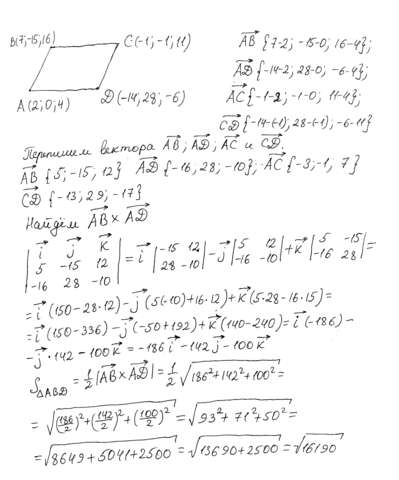 B(7;-15;16) C(-1;-1;11)
A(2;0;4) D(-14;28;-6)
AB {7-2; -15-0; 16-4};
AD {-14-2; 28-0; -6-4};
AC {-1-2; -1-0; 11-4};
CD {-14-(-1); 28-(-1); -6-11}
Перепишем вектора AB; AD; AC и CD.
AB {5; -15, 12} AD {-16, 28; -10}; AC {-3; -1, 7}
CD {-13; 29; -17}
Найдём AB × AD
| i j k |
| 5 -15 12 |
| -16 28 -10 | = i | -15 12 | - j | 5 12 | + k | 5 -15 | =
| 28 -10 | | -16 -10 | | -16 28 |
= i (150-28·12) - j (5(-10)+16·12) + k (5·28-16·15) =
= i (150-336) - j (-50+192) + k (140-240) = i (-186) -
- j · 142 - 100 k = -186 i - 142 j - 100 k
S△ABD = 1/2 |AB × AD| = 1/2 √186²+142²+100² =
= √(186/2)²+(142/2)²+(100/2)² = √93²+71²+50² =
= √8649+5041+2500 = √13690+2500 = √16190